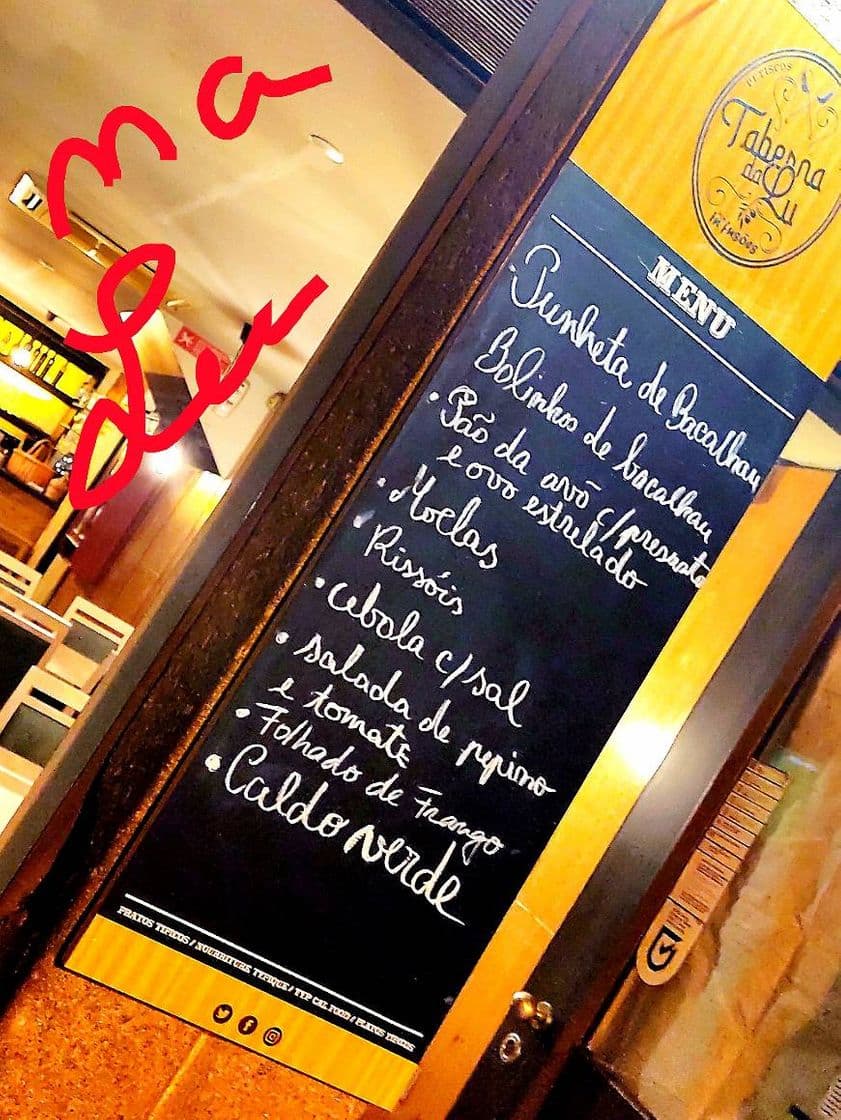 ma
Lu
PETISCOS
Taberna
da Lu
INFUSÕES
MENU
· Punheta de Bacalhau
Bolinhos de bacalhau
· Pão da avó c/presunto
e ovo estrelado
· Moelas
· Rissóis
· Cebola c/sal
· salada de pepino
e tomate
· Folhado de Frango
· Caldo verde
PRATOS TIPICOS / NOURRITURE TYPIQUE / TYPICAL FOOD / PLATOS TIPICOS